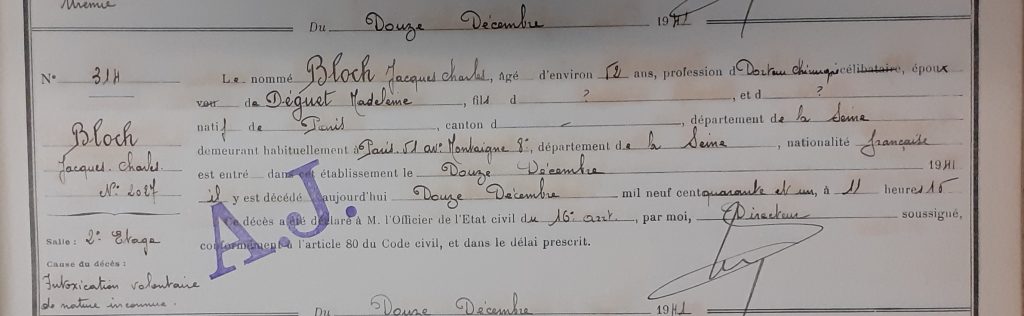 Urémie
Du Douze Décembre 1941
N° 314 Le nommé Bloch Jacques Charles, âgé d'environ 52 ans, profession d Docteur chirurgie célibataire, époux
voir de Déguet Madeleine, fils d ? , et d ?
Bloch natif de Paris, canton d — , département de la Seine
Jacques. Charles. demeurant habituellement à Paris. 51 avᵉ Montaigne 8ᵉ, département de la Seine, nationalité française
N° 2027 est entré dans cet établissement le Douze Décembre 1941
il y est décédé aujourd'hui Douze Décembre mil neuf cent quarante et un, à 11 heures 15
A.J.
Ce décès a été déclaré à M. l'Officier de l'Etat civil du 16ᵉ arrt., par moi, Directeur soussigné,
Salle : 2ᵉ Etage conformément à l'article 80 du Code civil, et dans le délai prescrit.
Cause du décès :
Intoxication volontaire
de nature inconnue.
Du Douze Décembre 1941